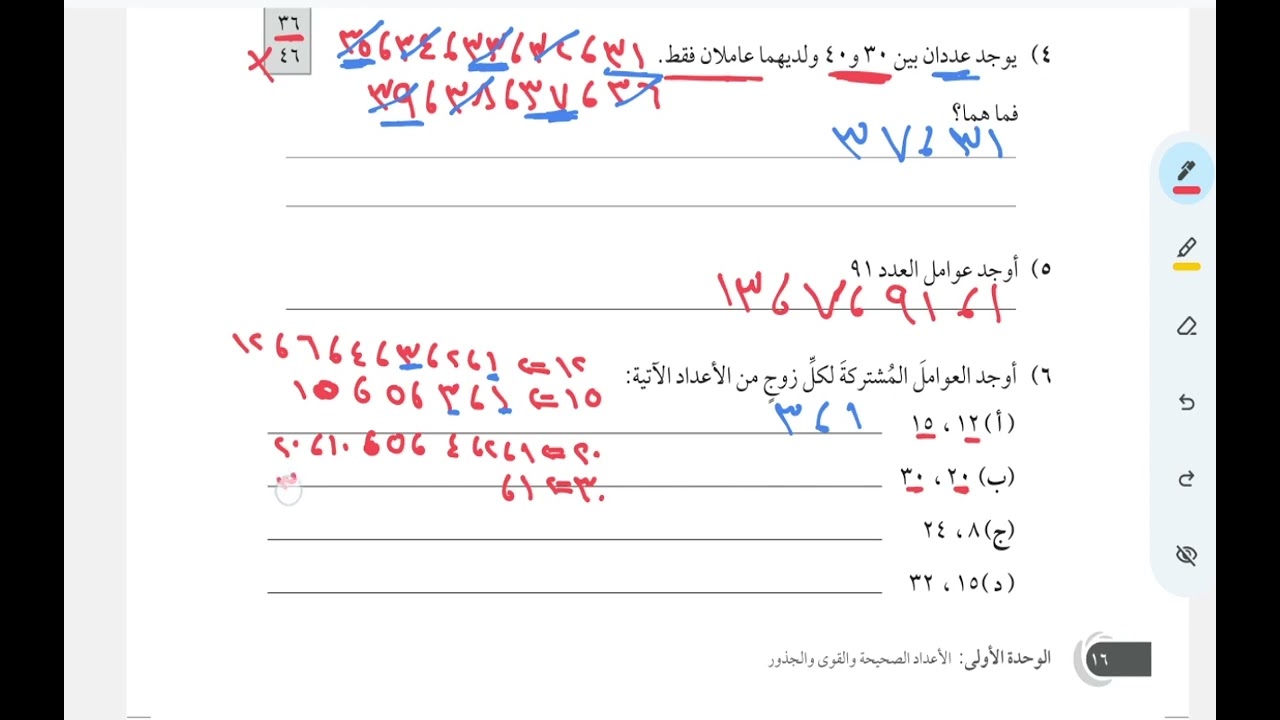 ٣٦
٤٦
٤) يوجد عددان بين ٣٠ و٤٠ ولديهما عاملان فقط. ٣١ ، ٣٢ ، ٣٣ ، ٣٤ ، ٣٥
٣٦ ، ٣٧ ، ٣٨ ، ٣٩
فما هما؟
٣١ ، ٣٧
٥) أوجد عوامل العدد ٩١
١ ، ٩١ ، ٧ ، ١٣
٦) أوجد العواملَ المُشتركةَ لكلِّ زوجٍ من الأعداد الآتية:
١٢ ⇐ ١ ، ٢ ، ٣ ، ٤ ، ٦ ، ١٢
١٥ ⇐ ١ ، ٣ ، ٥ ، ١٥
(أ) ١٢ ، ١٥ ١ ، ٣
٢٠ ⇐ ١ ، ٢ ، ٤ ، ٥ ، ١٠ ، ٢٠
(ب) ٢٠ ، ٣٠
٣٠ ⇐ ١ ، ٣
(ج) ٨ ، ٢٤
(د) ١٥ ، ٣٢
١٦ الوحدة الأولى: الأعداد الصحيحة والقوى والجذور